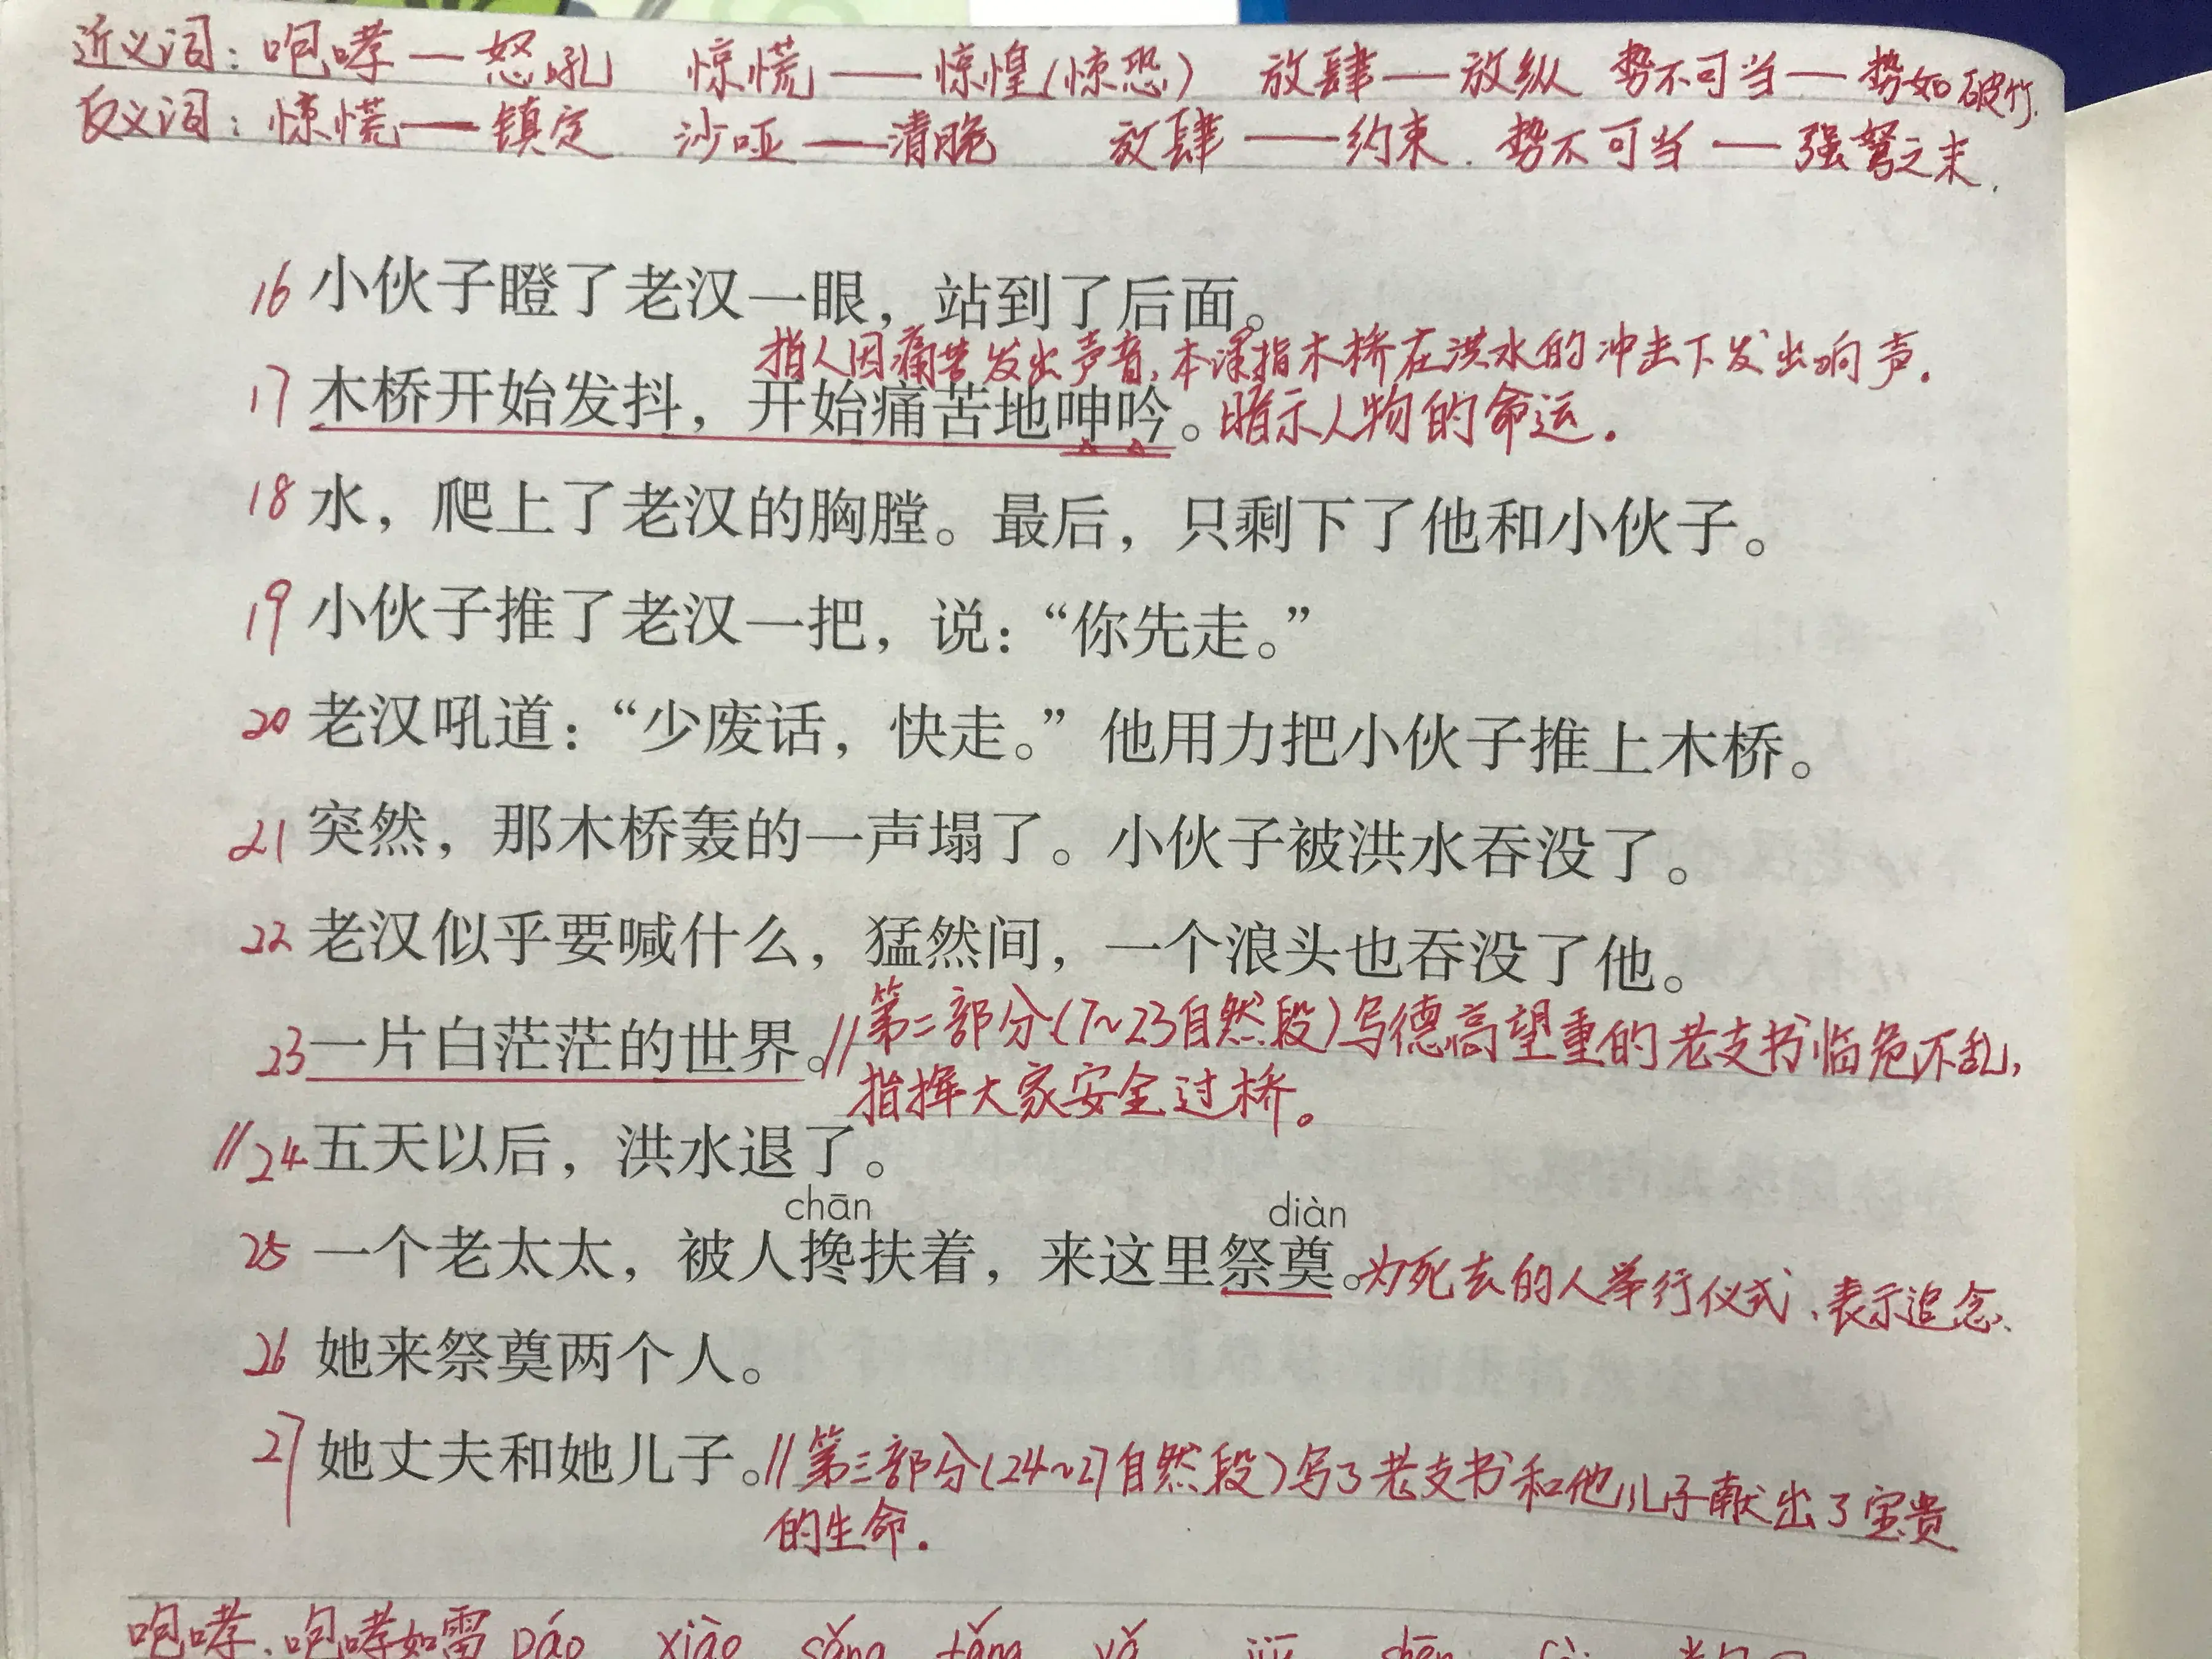 近义词：咆哮—怒吼 惊慌——惊惶(惊恐) 放肆—放纵 势不可当—势如破竹.
反义词：惊慌—镇定 沙哑—清脆 放肆——约束. 势不可当—强弩之末.
16 小伙子瞪了老汉一眼，站到了后面。
指人因痛苦发出声音,本课指木桥在洪水的冲击下发出响声.
17 木桥开始发抖，开始痛苦地呻吟。暗示人物的命运.
18 水，爬上了老汉的胸膛。最后，只剩下了他和小伙子。
19 小伙子推了老汉一把，说：“你先走。”
20 老汉吼道：“少废话，快走。”他用力把小伙子推上木桥。
21 突然，那木桥轰的一声塌了。小伙子被洪水吞没了。
22 老汉似乎要喊什么，猛然间，一个浪头也吞没了他。
23 一片白茫茫的世界。//第二部分(7~23自然段)写德高望重的老支书临危不乱,
指挥大家安全过桥。
//24 五天以后，洪水退了。
chān diàn
25 一个老太太，被人搀扶着，来这里祭奠。为死去的人举行仪式、表示追念、
26 她来祭奠两个人。
27 她丈夫和她儿子。//第三部分(24~27自然段)写了老支书和他儿子献出了宝贵
的生命.
咆哮、咆哮如雷 páo xiào sǎng tǎng yǎ